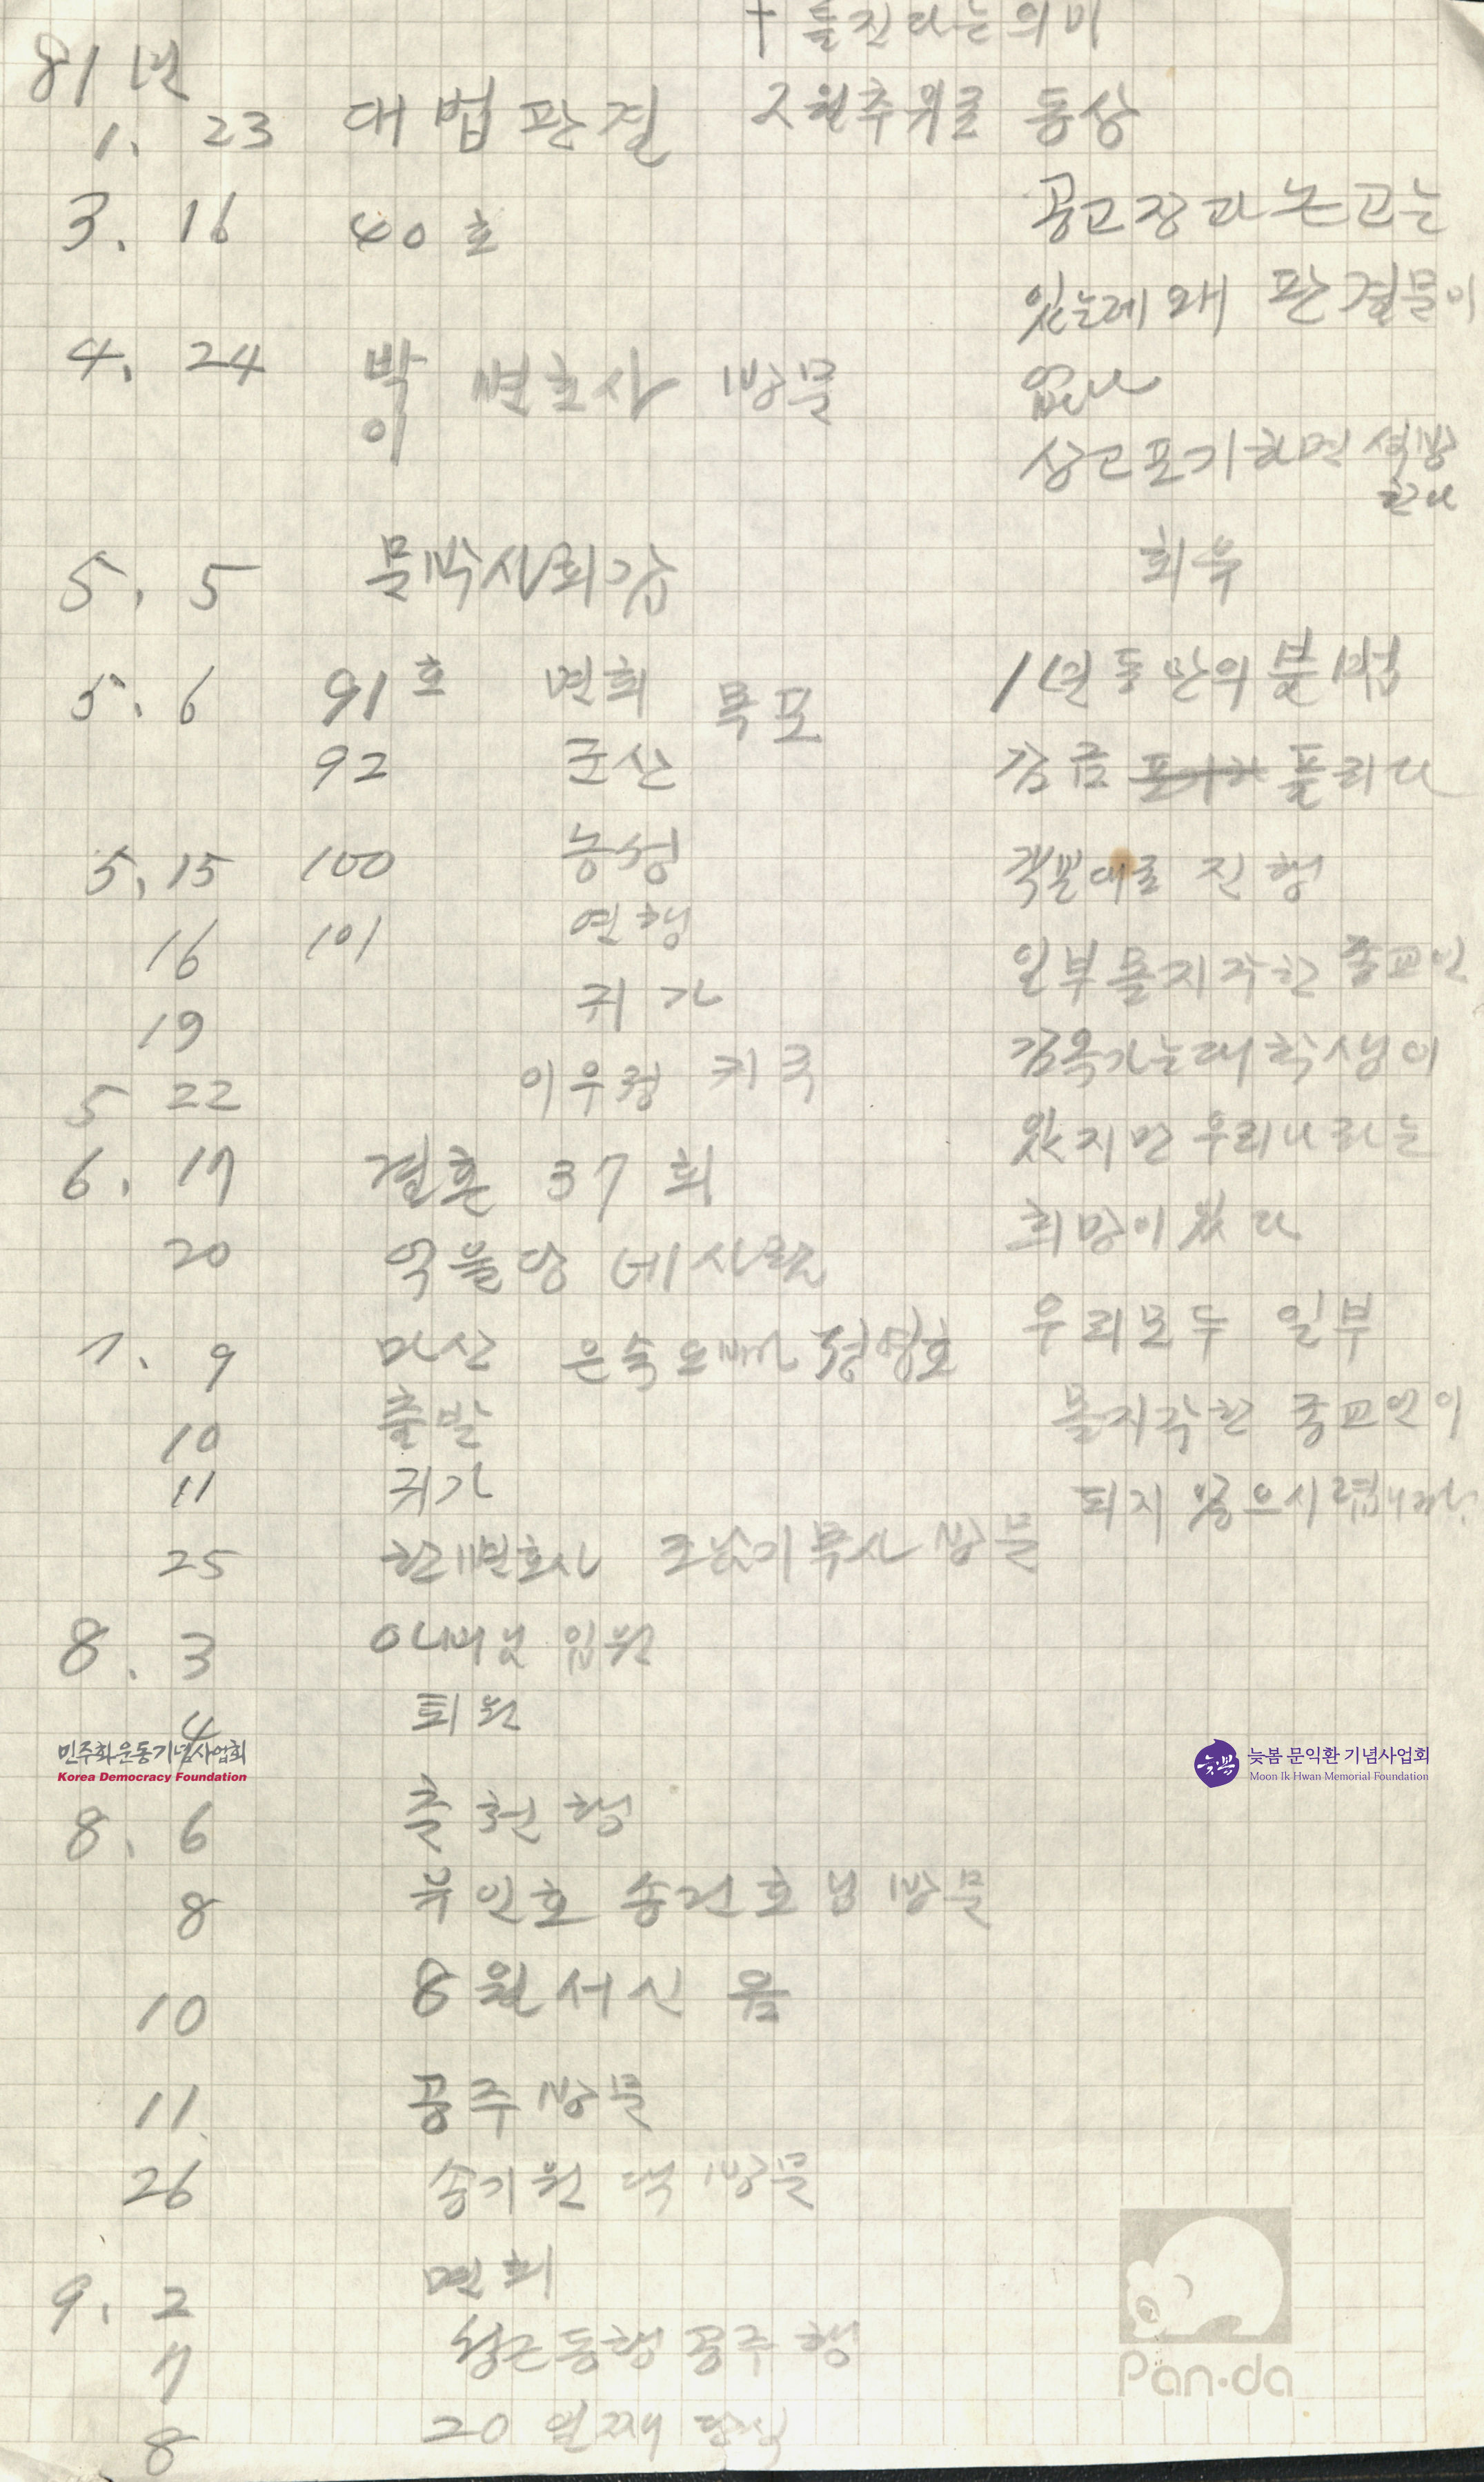 † 틀진다는 의미
81년
1. 23 대법판결 2월추위로 동상
3. 16 40호 공고장과 논고는
있는데 왜 판결문이
4. 24 박 변호사 방문 없나
이
상고포기하면 석방
한다
5. 5 문박사회갑 회유
5. 6 91호 면회 목포 1년동안의 불법
92 군산 감금 풀리다
5. 15 100 농성 각본대로 진행
16 101 연행 일부 몰지각한 종교인
19 귀가 감옥가는 대학생이
5 22 이우정 귀국 있지만 우리나라는
6. 17 결혼 37회 희망이 있다
20 억울당
7. 9 마산 은숙 오빠 정영호 우리모두 일부
10 출발 몰지각한 종교인이
11 귀가 되지 않으시렵니까?
25 한변호사 조남기목사 방문
8. 3 어머님 입원
4 퇴원
민주화운동기념사업회
Korea Democracy Foundation
늦봄 문익환 기념사업회
Moon Ik Hwan Memorial Foundation
8. 6 춘천행
8 유인호 송건호님 방문
10 8월 서신 옴
11 공주 방문
26 송기원 댁 방문
9. 2 면회
7 동행 공주행
8 20일째 단식
Pan·da